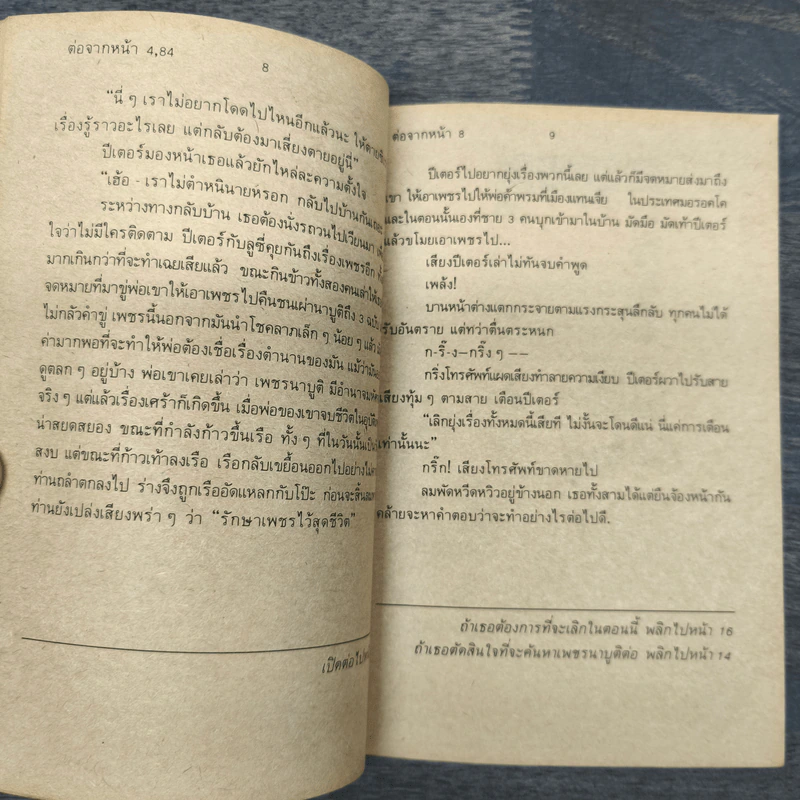 ต่อจากหน้า 4,84
8
“นี่ ๆ เราไม่อยากโดดไปไหนอีกแล้วนะ ให้ตายซิ
เรื่องรู้ราวอะไรเลย แต่กลับต้องมาเสี่ยงตายอยู่นี่”
ปีเตอร์มองหน้าเธอแล้วยักไหล่ละความตั้งใจ
“เฮ้อ - เราไม่ตำหนินายหรอก กลับไปบ้านกันเถอะ
ระหว่างทางกลับบ้าน เธอต้องนั่งรถวนไปเวียนมา
ใจว่าไม่มีใครติดตาม ปีเตอร์กับลูซี่คุยกันถึงเรื่องเพชรอีก
มากเกินกว่าที่จะทำเฉยเสียแล้ว ขณะกินข้าวทั้งสองคนเล่าให้
จดหมายที่มาขู่พ่อเขาให้เอาเพชรไปคืนชนเผ่านาบูติถึง 3 ฉบับ
ไม่กลัวคำขู่ เพชรนี้นอกจากมันนำโชคลาภเล็ก ๆ น้อย ๆ แล้ว
ค่ามากพอที่จะทำให้พ่อต้องเชื่อเรื่องตำนานของมัน แม้ว่า
ดูตลก ๆ อยู่บ้าง พ่อเขาเคยเล่าว่า เพชรนาบูติ มีอำนาจ
จริง ๆ แต่แล้วเรื่องเศร้าก็เกิดขึ้น เมื่อพ่อของเขาจบชีวิตใน
น่าสยดสยอง ขณะที่กำลังก้าวขึ้นเรือ ทั้ง ๆ ที่ในวันนั้น
สงบ แต่ขณะที่ก้าวเท้าลงเรือ เรือกลับเขยื้อนออกไปอย่าง
ท่านถลำตกลงไป ร่างจึงถูกเรืออัดแหลกกับโป๊ะ ก่อนจะสิ้นลม
ท่านยังเปล่งเสียงพร่า ๆ ว่า “รักษาเพชรไว้สุดชีวิต”
เปิดต่อไป
ต่อจากหน้า 8
9
ปีเตอร์ไปอยากยุ่งเรื่องพวกนี้เลย แต่แล้วก็มีจดหมายส่งมาถึง
เขา ให้เอาเพชรไปให้พ่อค้าพรมที่เมืองแทนเจีย ในประเทศมอรอคโค
และในตอนนั้นเองที่ชาย 3 คนบุกเข้ามาในบ้าน มัดมือ มัดเท้าปีเตอร์
แล้วขโมยเอาเพชรไป...
เสียงปีเตอร์เล่าไม่ทันจบคำพูด
เพล้ง!
บานหน้าต่างแตกกระจายตามแรงกระสุนลึกลับ ทุกคนไม่ได้
รับอันตราย แต่ทว่าตื่นตระหนก
ก-ริ๊-ง—กริ๊ง ๆ ——
กริ่งโทรศัพท์แผดเสียงทำลายความเงียบ ปีเตอร์ผวาไปรับสาย
เสียงทุ้ม ๆ ตามสาย เตือนปีเตอร์
“เลิกยุ่งเรื่องทั้งหมดนี้เสียที ไม่งั้นจะโดนดีแน่ นี่แค่การเตือน
เท่านั้นนะ”
กริ๊ก! เสียงโทรศัพท์ขาดหายไป
ลมพัดหวีดหวิวอยู่ข้างนอก เธอทั้งสามได้แต่ยืนจ้องหน้ากัน
คล้ายจะหาคำตอบว่าจะทำอย่างไรต่อไปดี.
ถ้าเธอต้องการที่จะเลิกในตอนนี้ พลิกไปหน้า 16
ถ้าเธอตัดสินใจที่จะค้นหาเพชรนาบูติต่อ พลิกไปหน้า 14